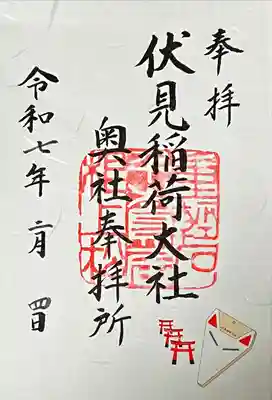 奉拝
伏見稲荷大社
奥社奉拝所
令和七年二月四日